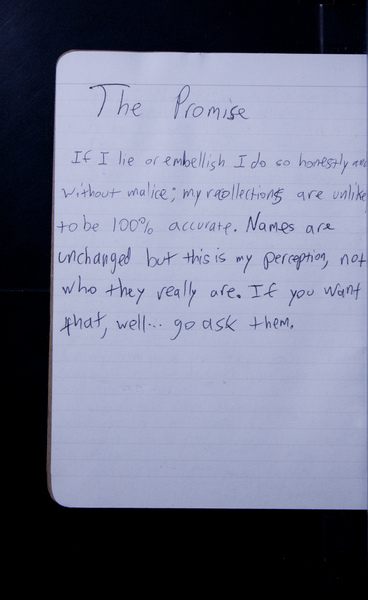 The Promise
If I lie or embellish I do so honestly and
without malice; my recollections are unlike
to be 100% accurate. Names are
unchanged but this is my perception, not
who they really are. If you want
that, well... go ask them.